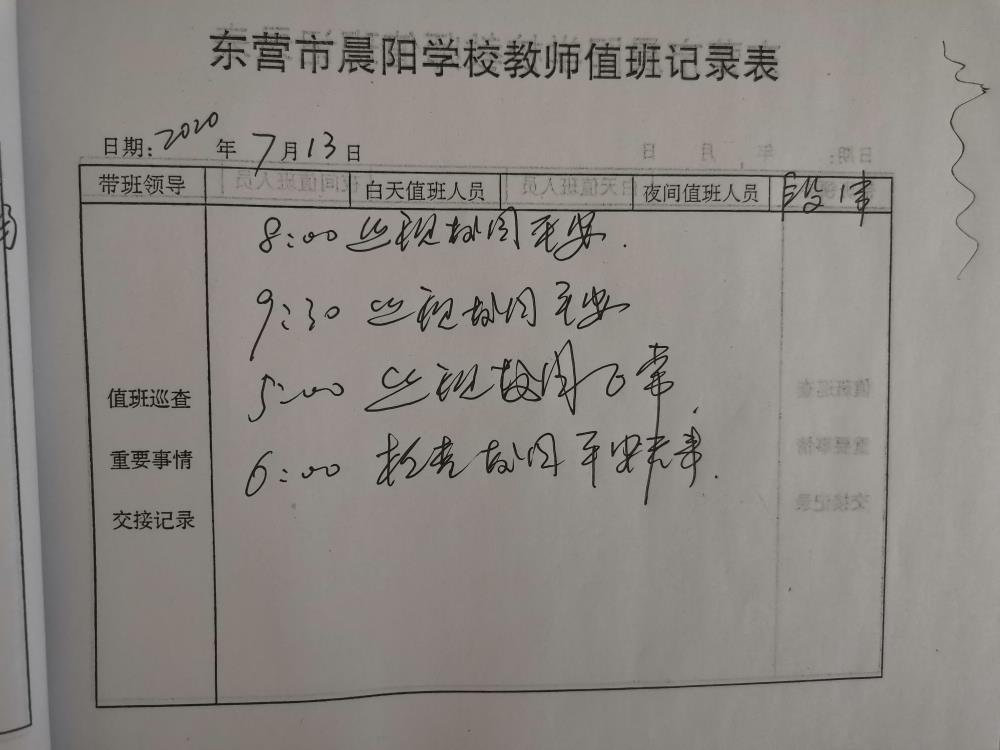 东营市晨阳学校教师值班记录表
日期: 2020 年 7 月 13 日
带班领导 白天值班人员 夜间值班人员 段伟
8:00 巡视校园平安.
9:30 巡视校园平安
5:00 巡视校园正常.
6:00 检查校园平安无事.
值班巡查
重要事情
交接记录